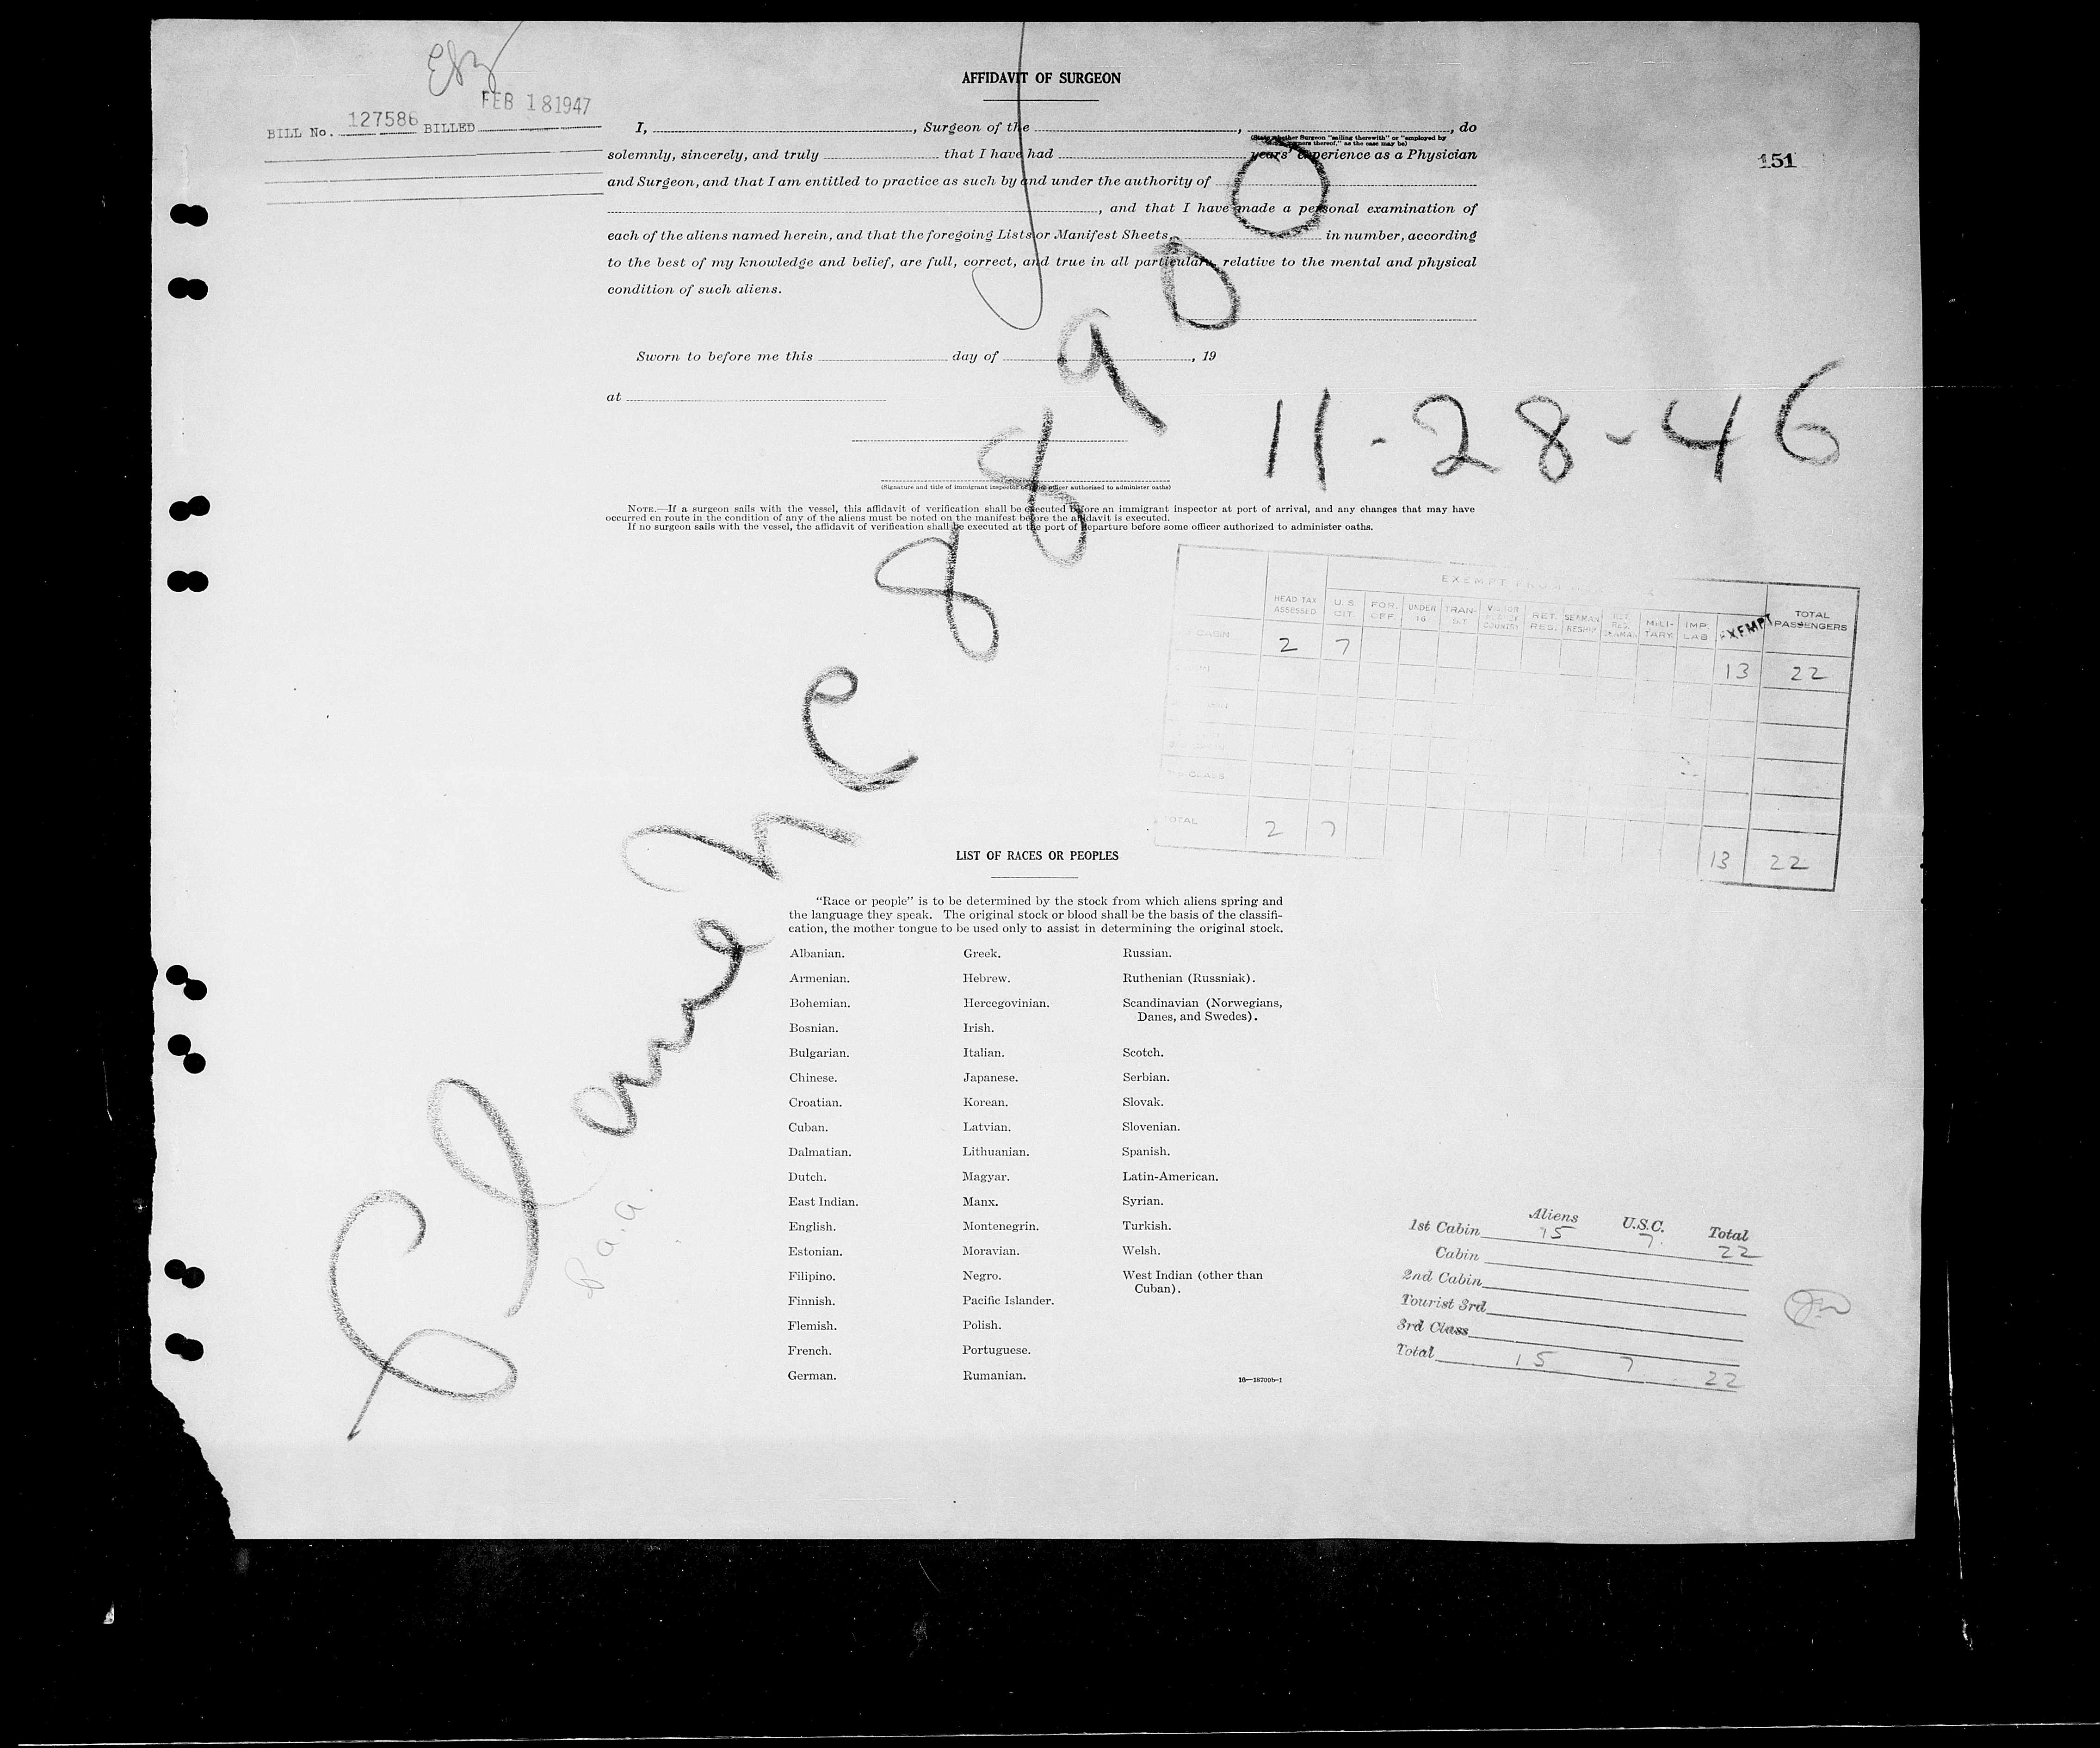 FEB 181947
BILL No. 127586 BILLED
151
AFFIDAVIT OF SURGEON
I, , Surgeon of the , , do
(State whether Surgeon "sailing therewith" or "employed by
owners thereof," as the case may be)
solemnly, sincerely, and truly that I have had years' experience as a Physician
and Surgeon, and that I am entitled to practice as such by and under the authority of
, and that I have made a personal examination of
each of the aliens named herein, and that the foregoing Lists or Manifest Sheets, in number, according
to the best of my knowledge and belief, are full, correct, and true in all particulars relative to the mental and physical
condition of such aliens.
Sworn to before me this day of , 19
at
11-28-46
(Signature and title of immigrant inspector or other officer authorized to administer oaths)
NOTE.—If a surgeon sails with the vessel, this affidavit of verification shall be executed before an immigrant inspector at port of arrival, and any changes that may have
occurred en route in the condition of any of the aliens must be noted on the manifest before the affidavit is executed.
If no surgeon sails with the vessel, the affidavit of verification shall be executed at the port of departure before some officer authorized to administer oaths.
88900
EXEMPT FROM
HEAD TAX ASSESSED U.S. CIT. FOR. OFF. UNDER 16 TRAN- SIT VISITOR COUNTRY RET. RES. SEAMAN RESHIP RET. RES. SEAMAN MILI- TARY IMP. LAB EXEMPT TOTAL PASSENGERS
CABIN 2 7 13 22
CLASS
TOTAL 2 7 13 22
LIST OF RACES OR PEOPLES
"Race or people" is to be determined by the stock from which aliens spring and
the language they speak. The original stock or blood shall be the basis of the classifi-
cation, the mother tongue to be used only to assist in determining the original stock.
Albanian. Greek. Russian.
Armenian. Hebrew. Ruthenian (Russniak).
Bohemian. Hercegovinian. Scandinavian (Norwegians,
Danes, and Swedes).
Bosnian. Irish.
Bulgarian. Italian. Scotch.
Chinese. Japanese. Serbian.
Croatian. Korean. Slovak.
Cuban. Latvian. Slovenian.
Dalmatian. Lithuanian. Spanish.
Dutch. Magyar. Latin-American.
East Indian. Manx. Syrian.
English. Montenegrin. Turkish.
Estonian. Moravian. Welsh.
Filipino. Negro. West Indian (other than
Cuban).
Finnish. Pacific Islander.
Flemish. Polish.
French. Portuguese.
German. Rumanian.
16—18709b-1
Aliens U.S.C. Total
1st Cabin 15 7 22
Cabin
2nd Cabin
Tourist 3rd
3rd Class
Total 15 7 22